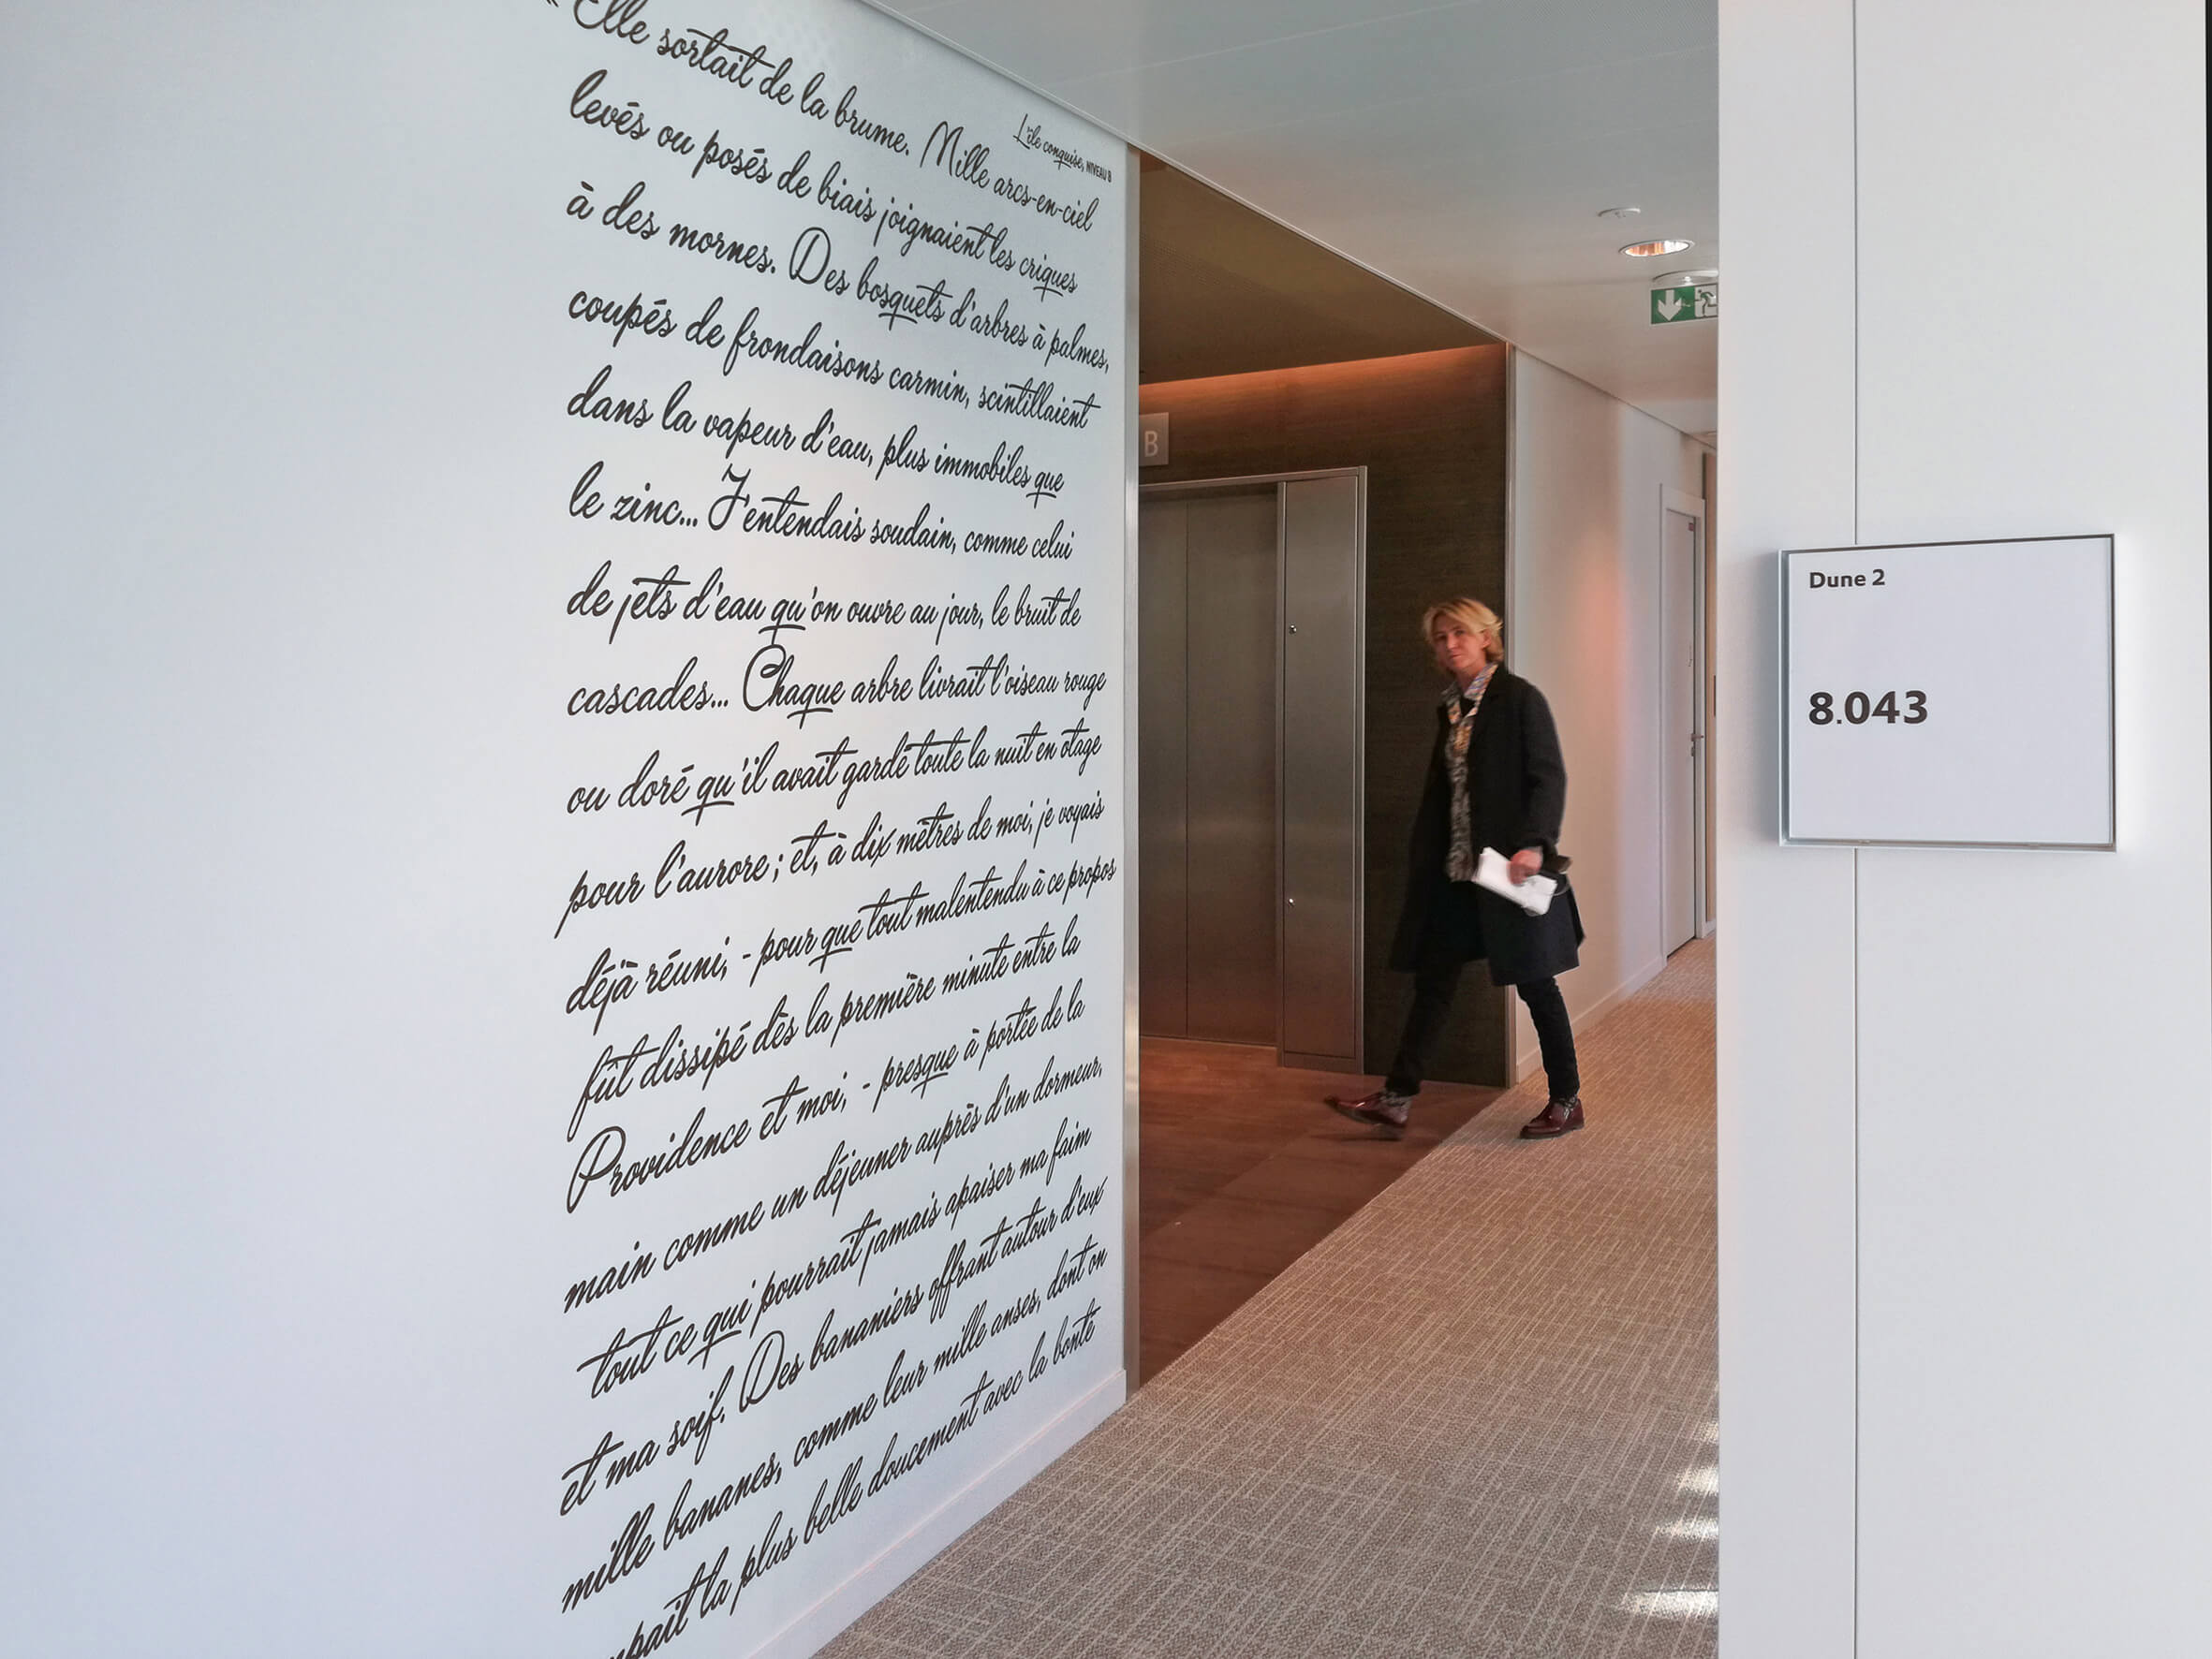 « Elle sortait de la brume. Mille arcs-en-ciel
levés ou posés de biais joignaient les criques
à des mornes. Des bosquets d'arbres à palmes,
coupés de frondaisons carmin, scintillaient
dans la vapeur d'eau, plus immobiles que
le zinc... J'entendais soudain, comme celui
de jets d'eau qu'on ouvre au jour, le bruit de
cascades... Chaque arbre livrait l'oiseau rouge
ou doré qu'il avait gardé toute la nuit en otage
pour l'aurore ; et, à dix mètres de moi, je voyais
déjà réuni, - pour que tout malentendu à ce propos
fût dissipé dès la première minute entre la
Providence et moi, - presque à portée de la
main comme un déjeuner auprès d'un dormeur,
tout ce qui pourrait jamais apaiser ma faim
et ma soif. Des bananiers offrant autour d'eux
mille bananes, comme leur mille anses, dont on
la plus belle doucement avec la bonté
L'île conquise, NIVEAU 8
B
Dune 2
8.043